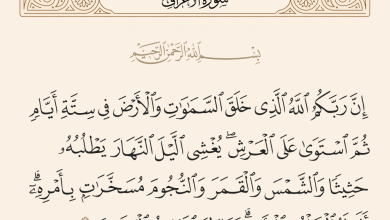 سورة الأعراف
بِسْمِ ٱللَّهِ ٱلرَّحْمَٰنِ ٱلرَّحِيمِ
إِنَّ رَبَّكُمُ ٱللَّهُ ٱلَّذِى خَلَقَ ٱلسَّمَٰوَٰتِ وَٱلْأَرْضَ فِى سِتَّةِ أَيَّامٍ
ثُمَّ ٱسْتَوَىٰ عَلَى ٱلْعَرْشِ ۖ يُغْشِى ٱلَّيْلَ ٱلنَّهَارَ يَطْلُبُهُۥ
حَثِيثًا وَٱلشَّمْسَ وَٱلْقَمَرَ وَٱلنُّجُومَ مُسَخَّرَٰتٍۭ بِأَمْرِهِۦٓ ۗ